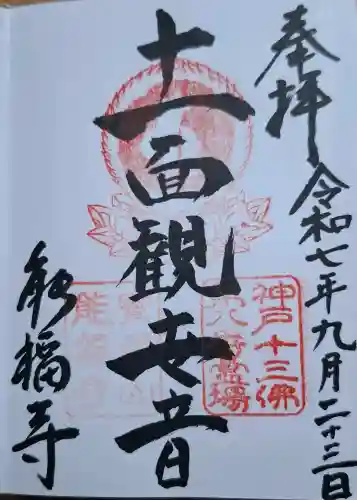 奉拝 令和七年九月二十三日
十一面観世音
能福寺
神戸十三佛